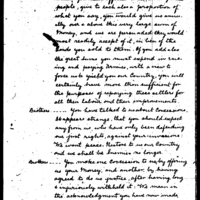 people, give to each also a proportion of
what you say, you would give us annu-
ally and on this very large sum of
Money, and we are persuaded they would
most readily accept of it, in lieu of the
lands you sold to them. If you add also
the great sums you must expend in rais-
ing and paying Armies, with a view to
force us to yield you our Country, you will
certainly have more than sufficient for
the purposes of repaying these settlers for
all their labour and their improvements.
Brothers You have talked to us about concessions.
It appears strange, that you should expect
any from us, who have only been defending
our just rights, against your invasions.
We want peace. Restore to us our Country
and we shall be Enemies no longer.
Brothers You make one concession to us by offering
us your Money, and another by having
agreed to do us justice, after having long
& injuriously withheld it. We mean in
the acknowledgment you have now made